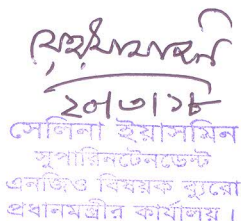 ২০/৩/১৮
সেলিনা ইয়াসমিন
সুপারিনটেনডেন্ট
এনজিও বিষয়ক ব্যুরো
প্রধানমন্ত্রীর কার্যালয়।